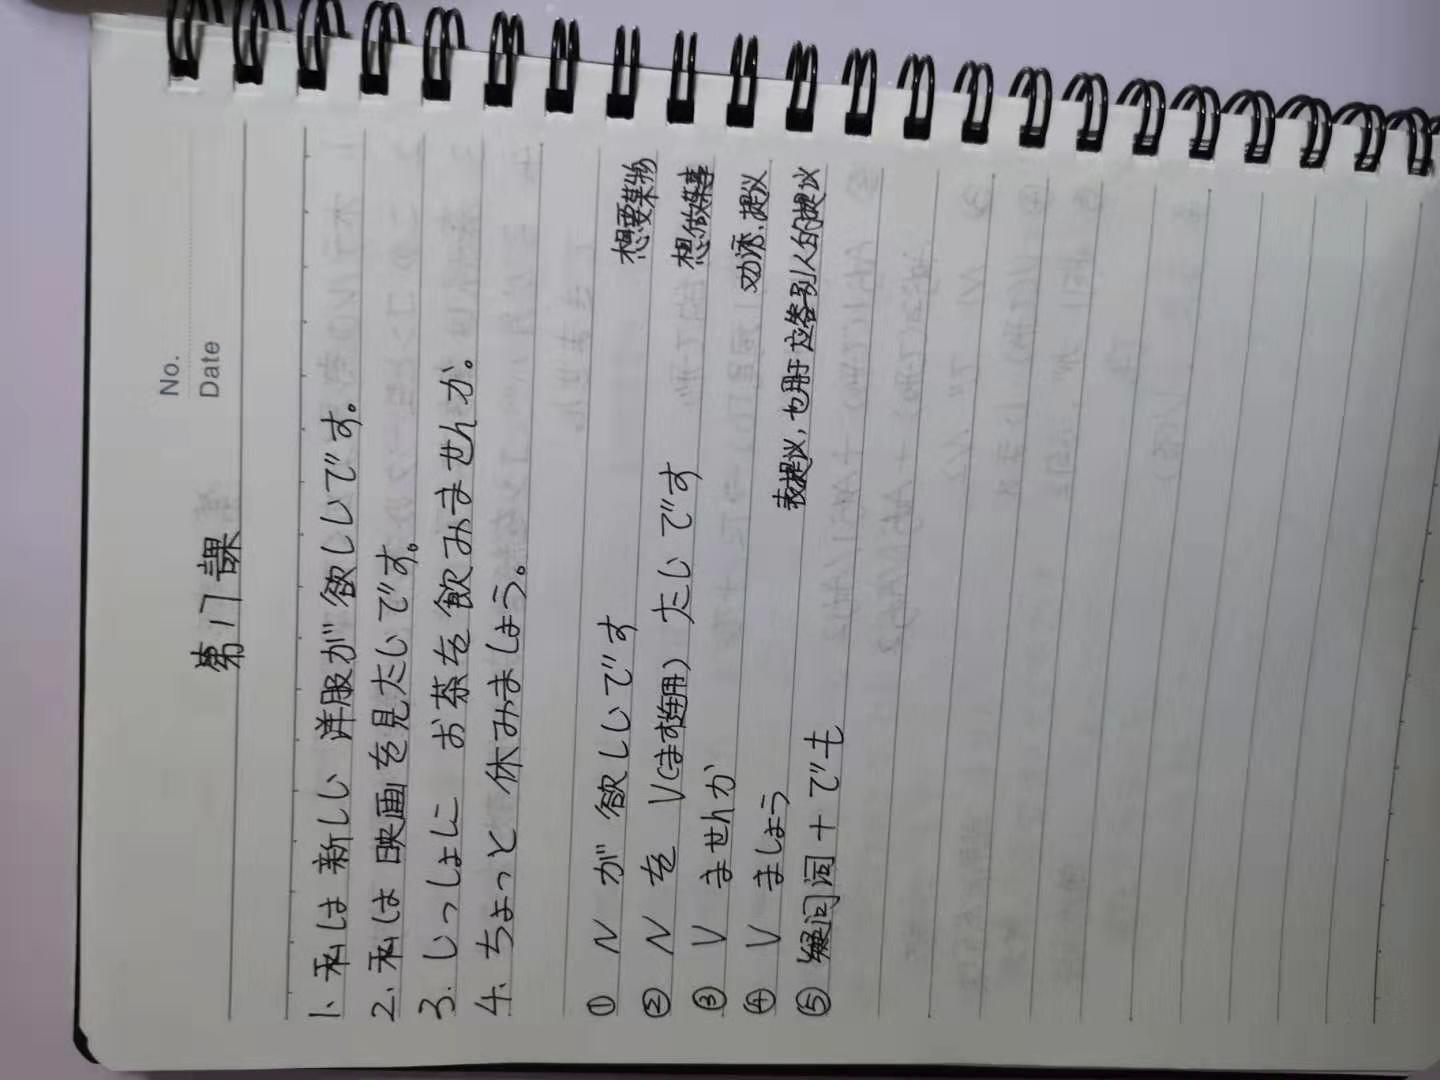 No.
Date
第17課
1. 私は 新しい 洋服が 欲しいです。
2. 私は 映画を見たいです。
3. いっしょに お茶を飲みませんか。
4. ちょっと 休みましょう。
① N が 欲しいです 想要某物
② N を V(ます連用) たいです 想做某事
③ V ませんか 劝诱，提议
④ V ましょう 表提议，也用于应答别人的提议
⑤ 疑问词 + でも